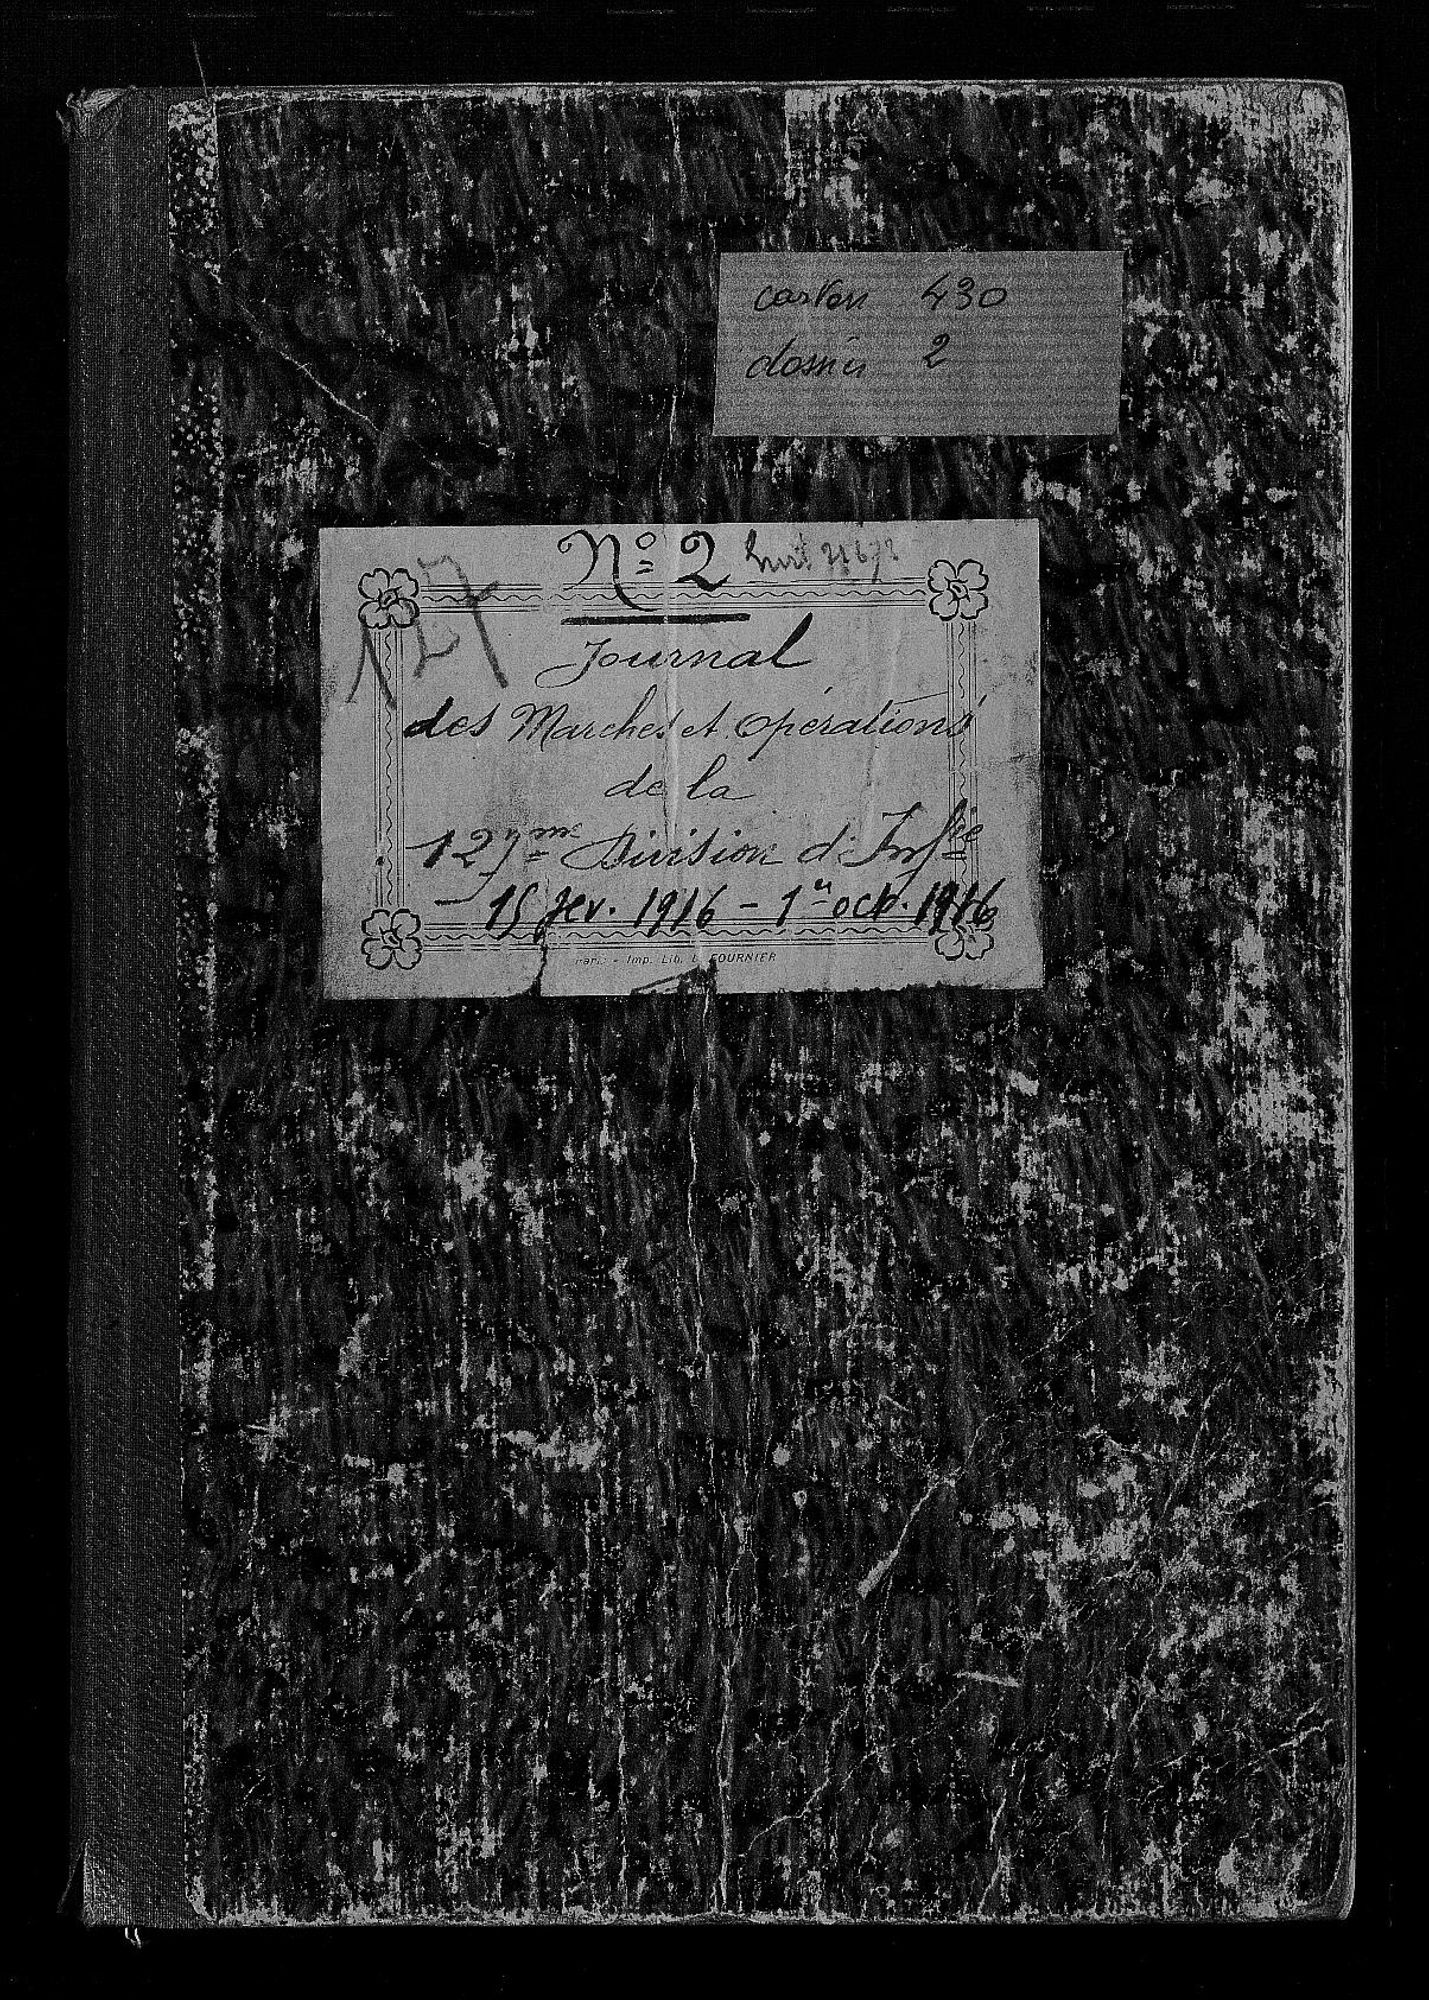 carton 430
dossier 2
Nº 2
127
Journal
des Marches et Opérations
de la
127me Division d'Infie
- 15 fev. 1916 - 1er oct. 1916
Paris - Imp. Lib. L. FOURNIER